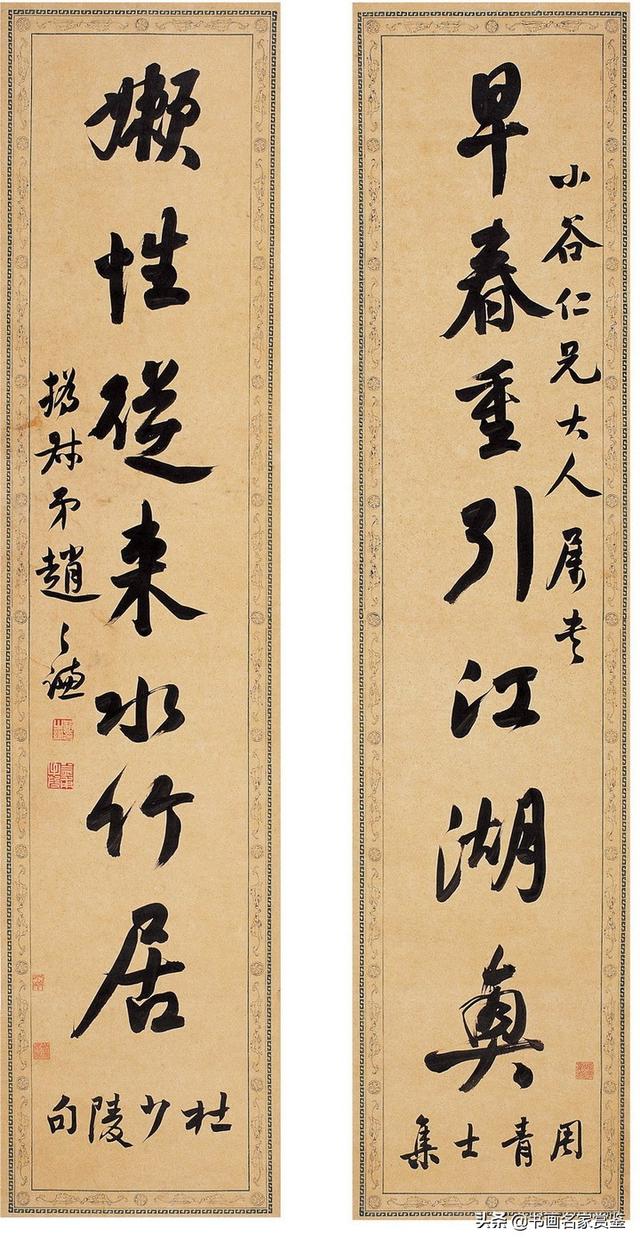 早春重引江湖興
小谷仁兄大人属書
周青士集
嬾性從来水竹居
杜少陵句
撝叔弟趙之謙
头条 @书画名家赏鉴